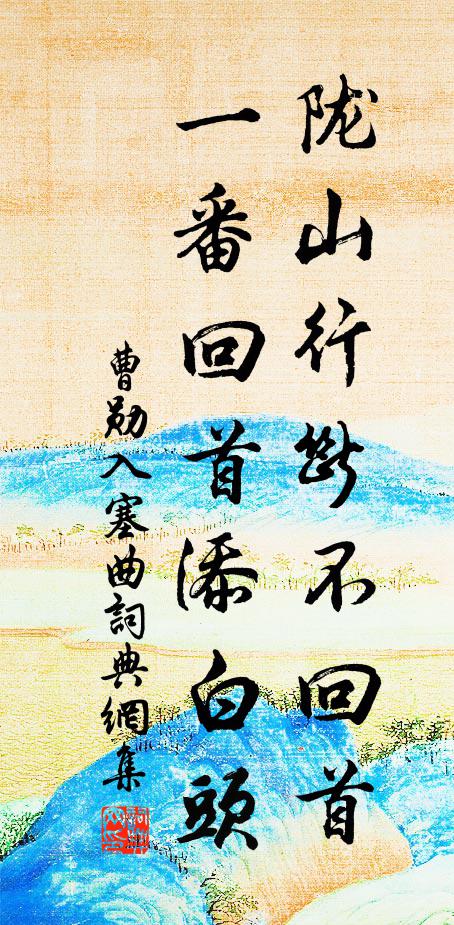 陇山行断不回首
一番回首添白頭
曹勛入塞曲詞典網集